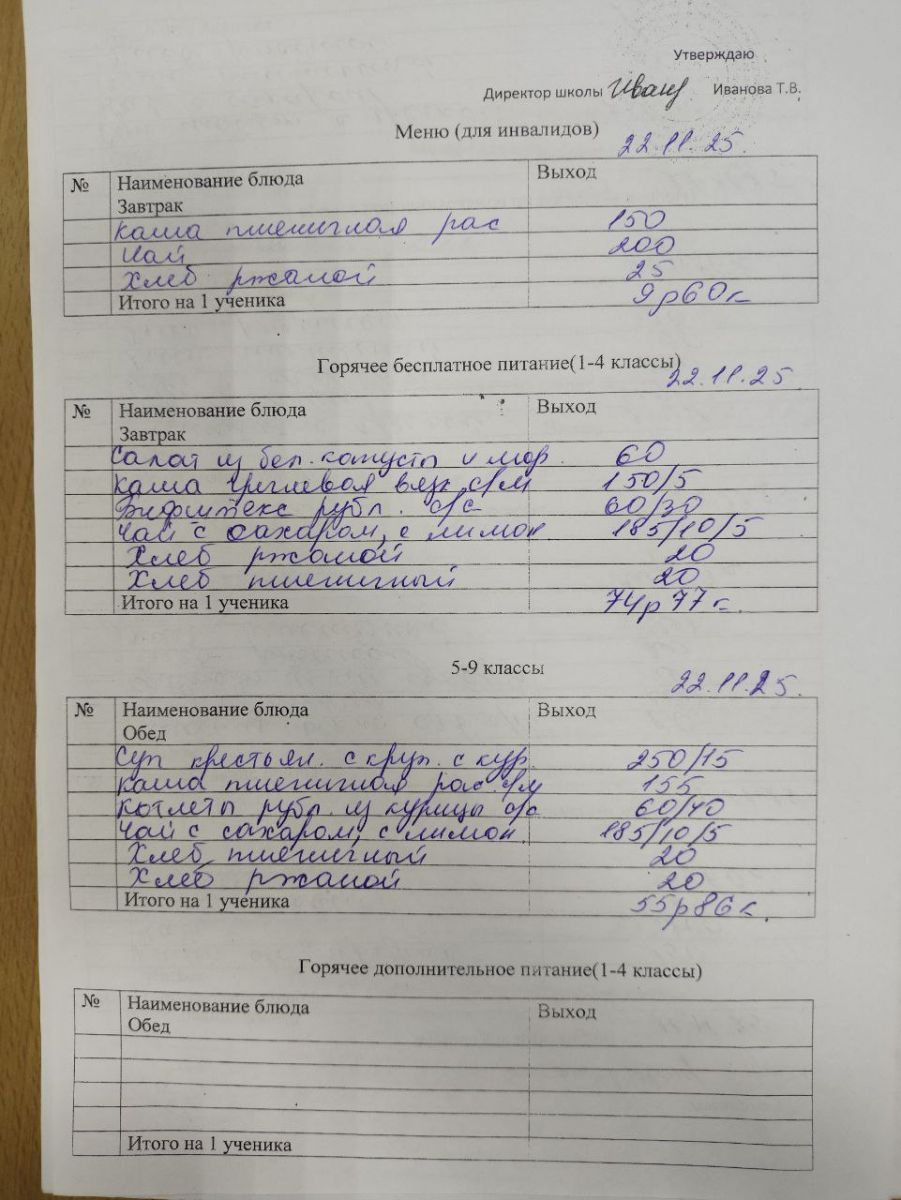 Утверждаю
Директор школы Иванова Т.В.
Меню (для инвалидов)
22.11.25.
№ Наименование блюда Выход
Завтрак
каша пшеничная рас 150
Чай 200
Хлеб ржаной 25
Итого на 1 ученика 9р60к
Горячее бесплатное питание(1-4 классы)
22.11.25
№ Наименование блюда Выход
Завтрак
Салат из бел. капусты и мор. 60
каша гречневая вязк с/м 150/5
Бифштекс рубл. с/с 60/30
Чай с сахаром, с лимон 185/10/5
Хлеб ржаной 20
Хлеб пшеничный 20
Итого на 1 ученика 74р77к.
5-9 классы
22.11.25.
№ Наименование блюда Выход
Обед
Суп крестьян. с круп. с кур. 250/15
каша пшеничная рас с/м 155
котлеты рубл. из курицы с/с 60/40
Чай с сахаром, с лимон 185/10/5
Хлеб пшеничный 20
Хлеб ржаной 20
Итого на 1 ученика 55р86к.
Горячее дополнительное питание(1-4 классы)
№ Наименование блюда Выход
Обед
Итого на 1 ученика